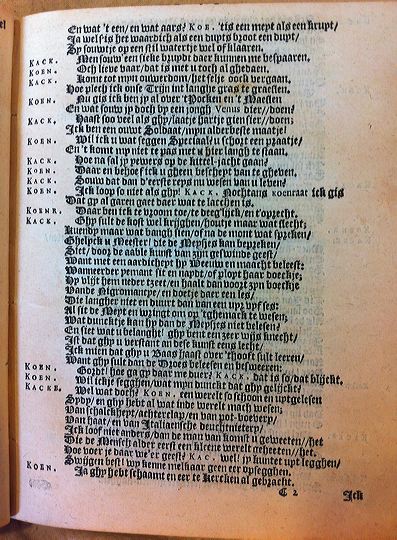 En wat 't een/ en wat aars? KOE. 'tis een meyt als een krupt/
Ja wel is het waardich als een duyts broot een dupt/
Sy souwtje op een stil watertje wel of klaaren.
KACK. Men souw een sieke bruydt daer kunnen me bespaaren.
KOEN. Och lieve vaar/ dat is met u toch al ghedaen.
KACK. Komt tot mijn ouwerdom/ het selfje oock vergaan.
Hoe plech ick onse Trijn int langhe gras te graesten.
KOEN. Nu gis ick ben jy al over 't Pocken en 't Maesten
En wat souw jy doch by een jongh Venus dier// doen;
KACK. Haast soo veel als ghy/ laatje hartje gien sier// doen;
Ick ben een ouwt Soldaat/ mijn alderbeste maatje!
KOEN. Wil ick u wat seggen Speciaal/ u schort een praatje/
En 't komt mijn niet te pas met u hier langh te staan.
KACK. Hoe na sal jy yewers op de kittel-jacht gaan?
KOEN. Daar en behoef ick u gheen bescheyt van te gheven.
KACK. Souw dat dan d'eerste reys nu wesen van u leven?
KOEN. Ick loop so niet als ghy! KACK. Nochtans koenraat ick gis
Dat gy al garen gaet daer wat te lacchen is.
KOENR. Daar ben ick te vroom toe/ te deeg'lijck/ en t'oprecht.
KACK. Ghy sult de kost wel krijghen/ houtje maar wat slecht;
Luendy maar wat bangh sien/ of na de mont wat spreken/
Ghelijck u Meester! die de Meysjes kan bepreken/
Siet/ voor de aable kunst van zijn geswinde geest/
Want met een aardicheyt hy Weeuw en maacht beleest:
Wanneer der yemant sit en napdt/ of slopt haar doeckje;
Hy blijft hem neder tzeet/ en haalt dan voort zijn boeckje
Vande Nigromancye/ en doetje daer een les/
Die langher niet en duurt dan van een uyr vyf ses:
Al sit de Meyt en wringt om op 'tghemack te wesen;
Wat dunckt je kan hy dan de Meysjes niet belesen?
En siet wat u belanght! ghy bent een zeer wijs knecht/
Ist dat ghy u verstant an dese kunst eens lecht/
Ick mien dat ghy u Baas haast over 'thooft sult leeren/
Want ghy sult dan de Droes belesen en besweeren:
KOEN. Gordt! hoe ga gy daar me duer? KACK. dat is so/ dat blijckt.
KOEN. Wil ickje segghen/ wat mijn dunckt dat ghy gelijckt?
KACKE. Wel wat doch? KOEN. een werelt so schoon en uytgelesen
Sydy/ en ghy hebt al wat inde werelt mach wesen;
Van schalckheyt/ achterclap/ en van pot-boevery/
Van haat/ en van Italiaensche deuchtnietery/
Ick loof niet anders/ dan de man van konst u geweeten//het
Die de Mensch alder eerst een kleene werelt geheeten// het.
Hoe voer je daar we'er geest? KAC. wel! jy kuntet upt legghen/
KOEN. Swijgen best! wy kenne melkaar geen eer opsegghen.
Ja ghy hebt schaamt en eer te Kercken al gebracht.
C 2 Ick